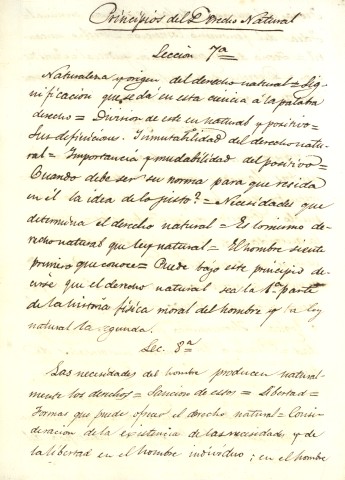 Principios del Derecho Natural
Leccion 7ª
Naturaleza y origen del derecho natural = Sig-
nificacion que se dá en esta ciencia á la palabra
derecho = Division de este en natural y positivo =
Sus definiciones. Inmutabilidad del derecho natu-
ral = Importancia y mudabilidad del positivo =
Cuando debe ser su norma para que resida
en él la idea de lo justo? = Necesidades que
determina el derecho natural = Es lo mismo de-
recho natural que ley natural = El hombre siente
primero que conoce = Puede bajo este principio de-
cirse que el derecho natural sea la 1ª parte
de la historia física moral del hombre y la ley
natural la segunda.
Lec. 8ª
Las necesidades del hombre producen natural-
mente los derechos = Sancion de esos = Libertad =
Formas que puede ofrecer el derecho natural = Consi-
deracion de la existencia de las necesidades y de
la libertad en el hombre individuo; en el hombre